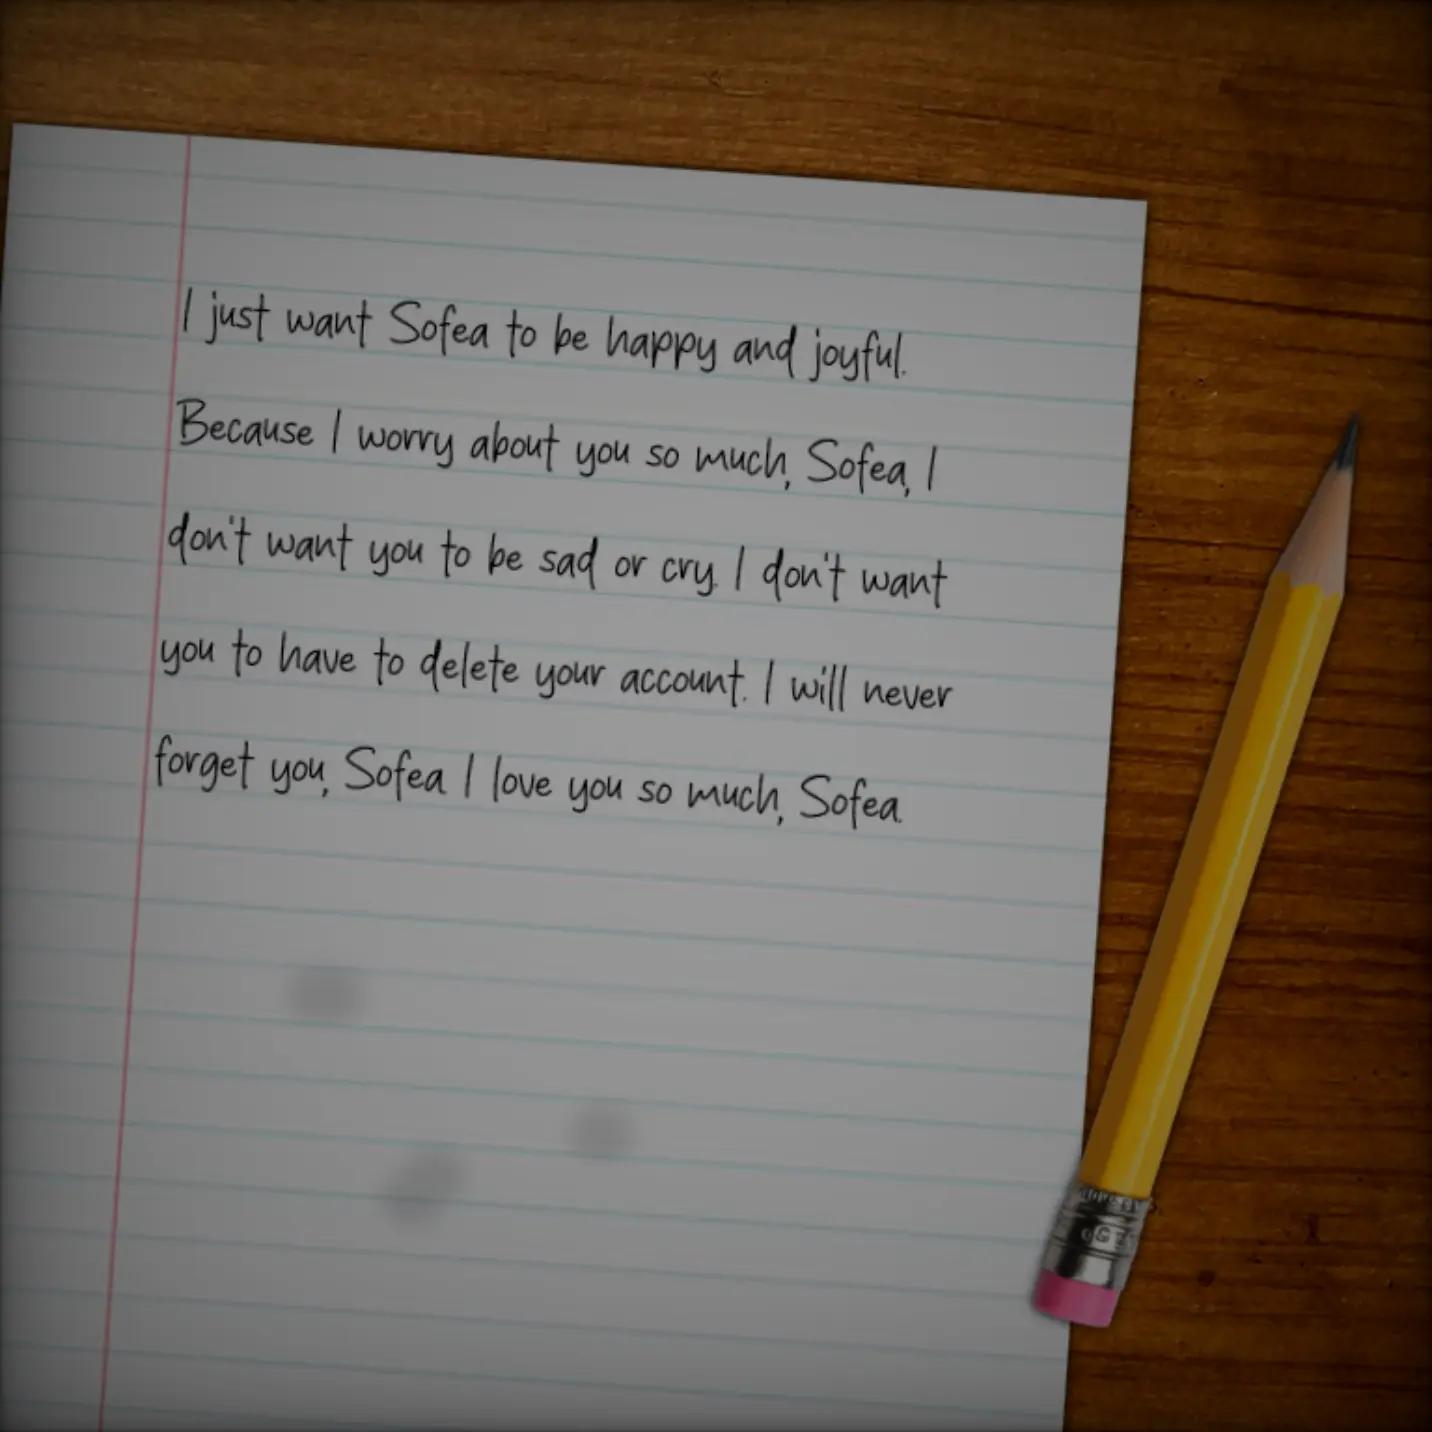 I just want Sofea to be happy and joyful.
Because I worry about you so much, Sofea, I
don't want you to be sad or cry. I don't want
you to have to delete your account. I will never
forget you, Sofea I love you so much, Sofea.